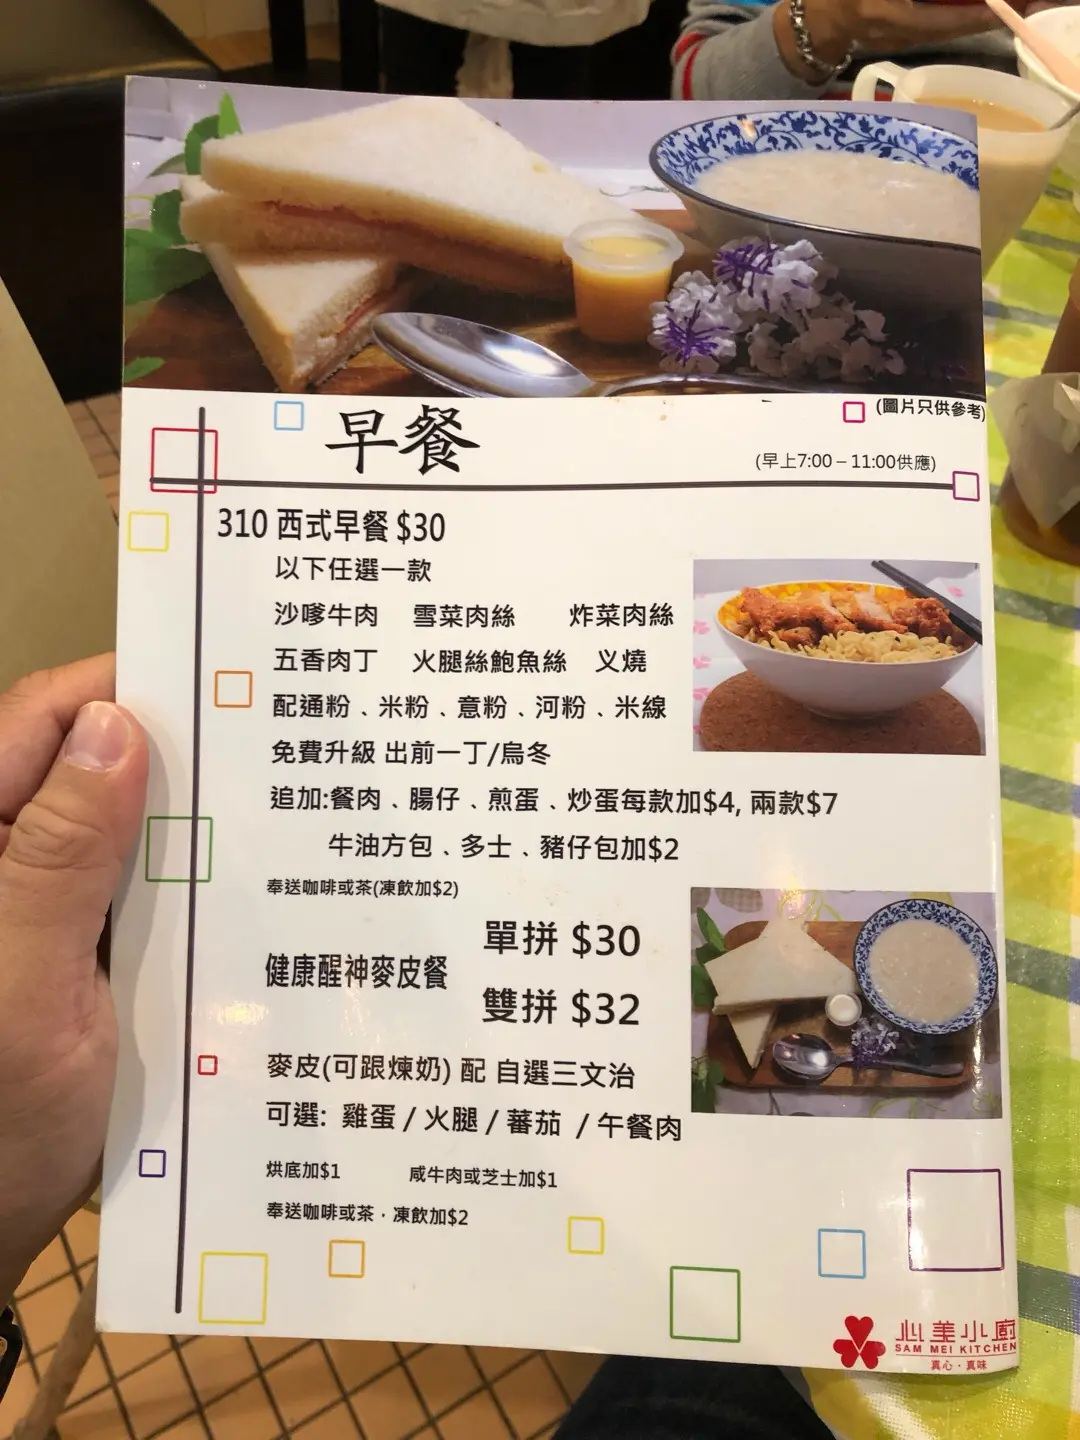 (圖片只供參考)
早餐
(早上7:00 – 11:00供應)
310 西式早餐 $30
以下任選一款
沙嗲牛肉 雪菜肉絲 炸菜肉絲
五香肉丁 火腿絲鮑魚絲 义燒
配通粉、米粉、意粉、河粉、米線
免費升級 出前一丁/烏冬
追加:餐肉、腸仔、煎蛋、炒蛋每款加$4, 兩款$7
牛油方包、多士、豬仔包加$2
奉送咖啡或茶(凍飲加$2)
健康醒神麥皮餐
單拼 $30
雙拼 $32
麥皮(可跟煉奶) 配 自選三文治
可選: 雞蛋 / 火腿 / 蕃茄 / 午餐肉
烘底加$1 咸牛肉或芝士加$1
奉送咖啡或茶，凍飲加$2
心美小廚
SAM MEI KITCHEN
真心·真味